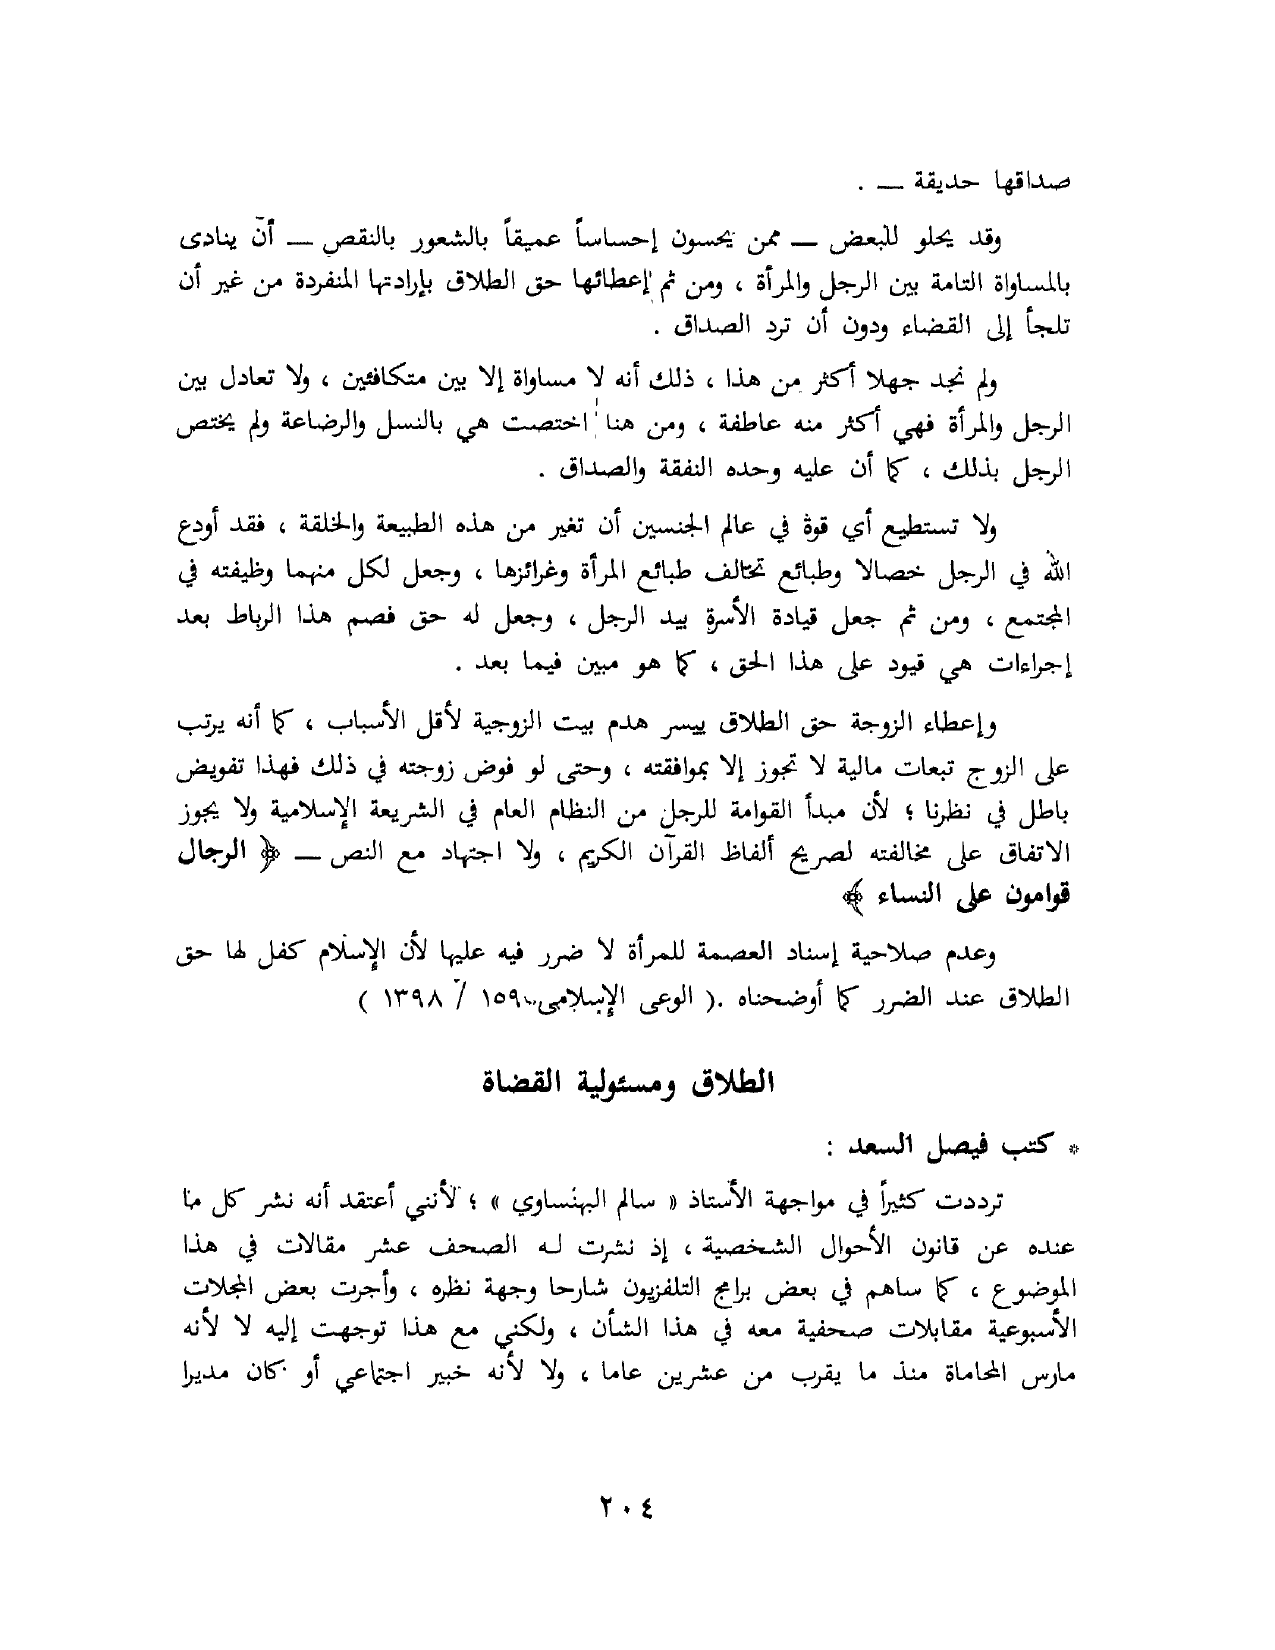 صداقها حديقة — .
وقد يحلو للبعض — ممن يحسون إحساساً عميقاً بالشعور بالنقص — أن ينادى
بالمساواة التامة بين الرجل والمرأة ، ومن ثم إعطائها حق الطلاق بإرادتها المنفردة من غير أن
تلجأ إلى القضاء ودون أن ترد الصداق .
ولم نجد جهلا أكثر من هذا ، ذلك أنه لا مساواة إلا بين متكافئين ، ولا تعادل بين
الرجل والمرأة فهي أكثر منه عاطفة ، ومن هنا اختصت هي بالنسل والرضاعة ولم يختص
الرجل بذلك ، كما أن عليه وحده النفقة والصداق .
ولا تستطيع أي قوة في عالم الجنسين أن تغير من هذه الطبيعة والخلقة ، فقد أودع
الله في الرجل خصالا وطبائع تخالف طبائع المرأة وغرائزها ، وجعل لكل منهما وظيفته في
المجتمع ، ومن ثم جعل قيادة الأسرة بيد الرجل ، وجعل له حق فصم هذا الرباط بعد
إجراءات هي قيود على هذا الحق ، كما هو مبين فيما بعد .
وإعطاء الزوجة حق الطلاق ييسر هدم بيت الزوجية لأقل الأسباب ، كما أنه يرتب
على الزوج تبعات مالية لا تجوز إلا بموافقته ، وحتى لو فوض زوجته في ذلك فهذا تفويض
باطل في نظرنا ؛ لأن مبدأ القوامة للرجل من النظام العام في الشريعة الإسلامية ولا يجوز
الاتفاق على مخالفته لصريح ألفاظ القرآن الكريم ، ولا اجتهاد مع النص — ﴿ الرجال
قوامون على النساء ﴾
وعدم صلاحية إسناد العصمة للمرأة لا ضرر فيه عليها لأن الإسلام كفل لها حق
الطلاق عند الضرر كما أوضحناه .( الوعى الإسلامى ١٥٩ / ١٣٩٨ )
الطلاق ومسئولية القضاة
* كتب فيصل السعد :
ترددت كثيراً في مواجهة الأستاذ « سالم البهنساوي » ؛ لأنني أعتقد أنه نشر كل ما
عنده عن قانون الأحوال الشخصية ، إذ نشرت له الصحف عشر مقالات في هذا
الموضوع ، كما ساهم في بعض برامج التلفزيون شارحا وجهة نظره ، وأجرت بعض المجلات
الأسبوعية مقابلات صحفية معه في هذا الشأن ، ولكني مع هذا توجهت إليه لا لأنه
مارس المحاماة منذ ما يقرب من عشرين عاما ، ولا لأنه خبير اجتماعي أو كان مديرا
٢٠٤